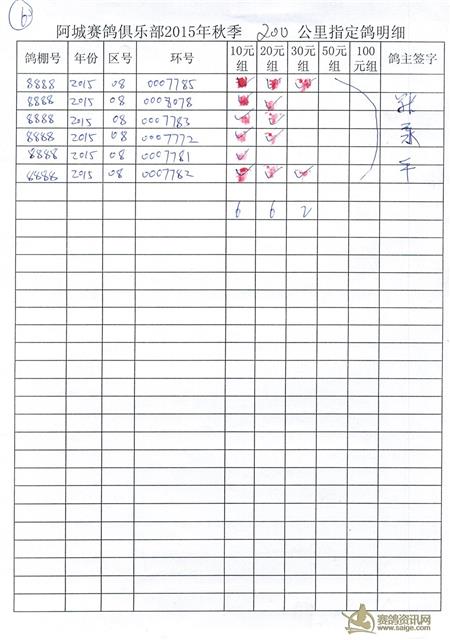 6
阿城赛鸽俱乐部2015年秋季 200 公里指定鸽明细
鸽棚号 年份 区号 环号 10元组 20元组 30元组 50元组 100元组 鸽主签字
8888 2015 08 0007785
8888 2015 08 0008078
8888 2015 08 0007783
8888 2015 08 0007772
8888 2015 08 0007781
8888 2015 08 0007782
6 6 2
赛鸽资讯网
www.saige.com